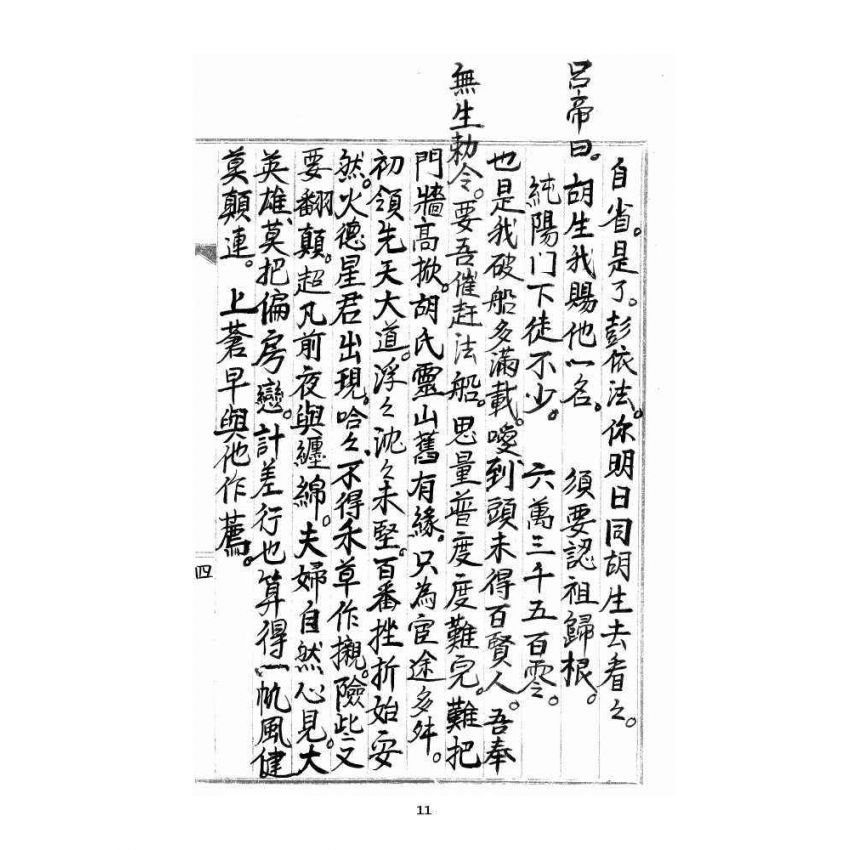 自省。是了。彭依法。你明日同胡生去看々。
呂帝曰。胡生我賜他一名。 須要認祖歸根。
純陽门下徒不少。 六萬三千五百零。
也是我破船多滿載。嗳到頭未得百賢人。吾奉
無生勅令。要吾催赶法船。思量普度度難完。難把
門牆高掀。胡氏靈山舊有緣。只為宦途多舛。
初領先天大道。浮々沈々未堅。百番挫折始妥
然。火德星君出現。哈々不得禾草作襯。險些又
要翻顛。超凡前夜與纏綿。夫婦自然心見。大
英雄、莫把偏房戀。計差行也算得一帆風健
莫顛連。上蒼早與他作薦。
四
11